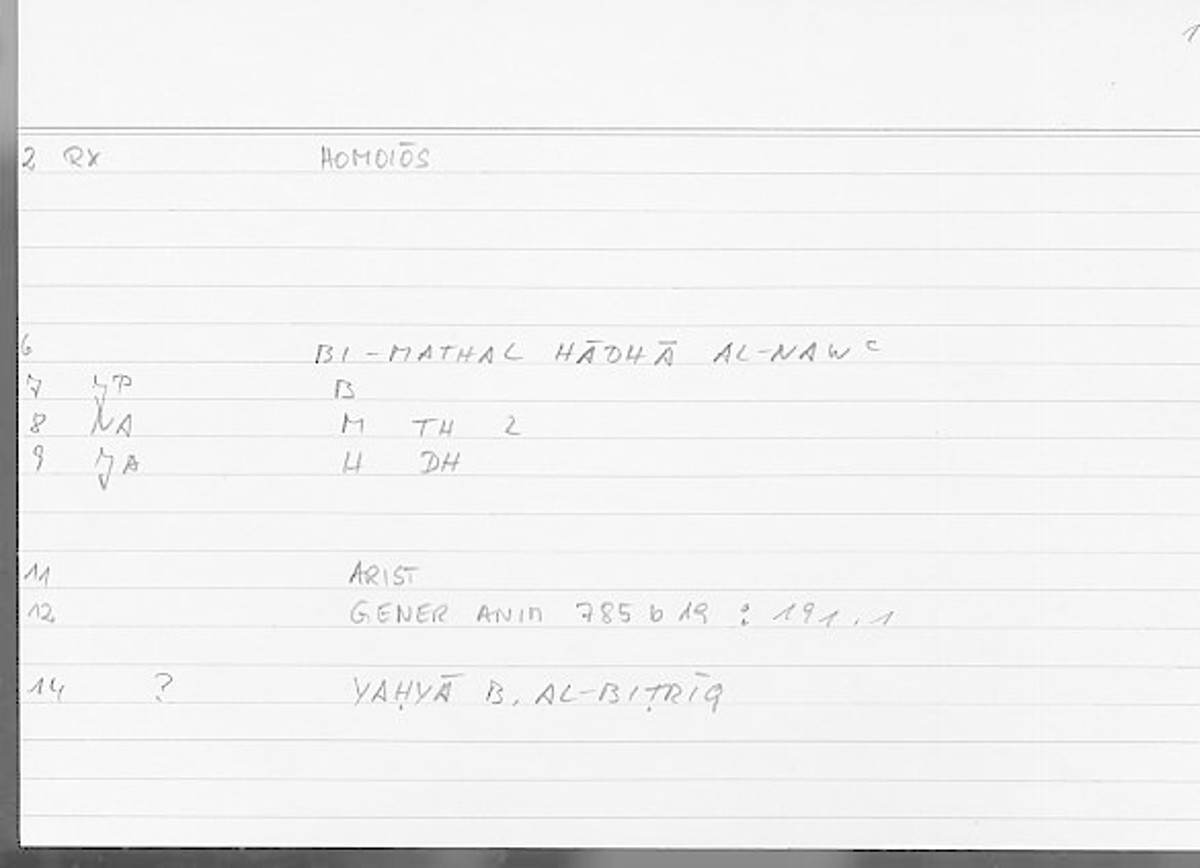 1
2 RX HOMOIŌS
6 BI-MATHAL HĀDHĀ AL-NAWᶜ
7 JP B
8 NA M TH 2
9 JA H DH
11 ARIST
12 GENER ANIM 785 b 19 : 191.1
14 ? YAḤYĀ B. AL-BIṬRĪQ